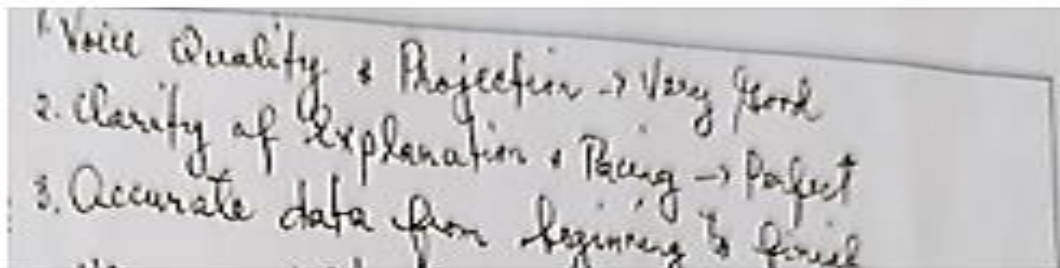 1. Voice Quality & Projection → Very Good
2. Clarity of Explanation & Pacing → Perfect
3. Accurate data from beginning to finish